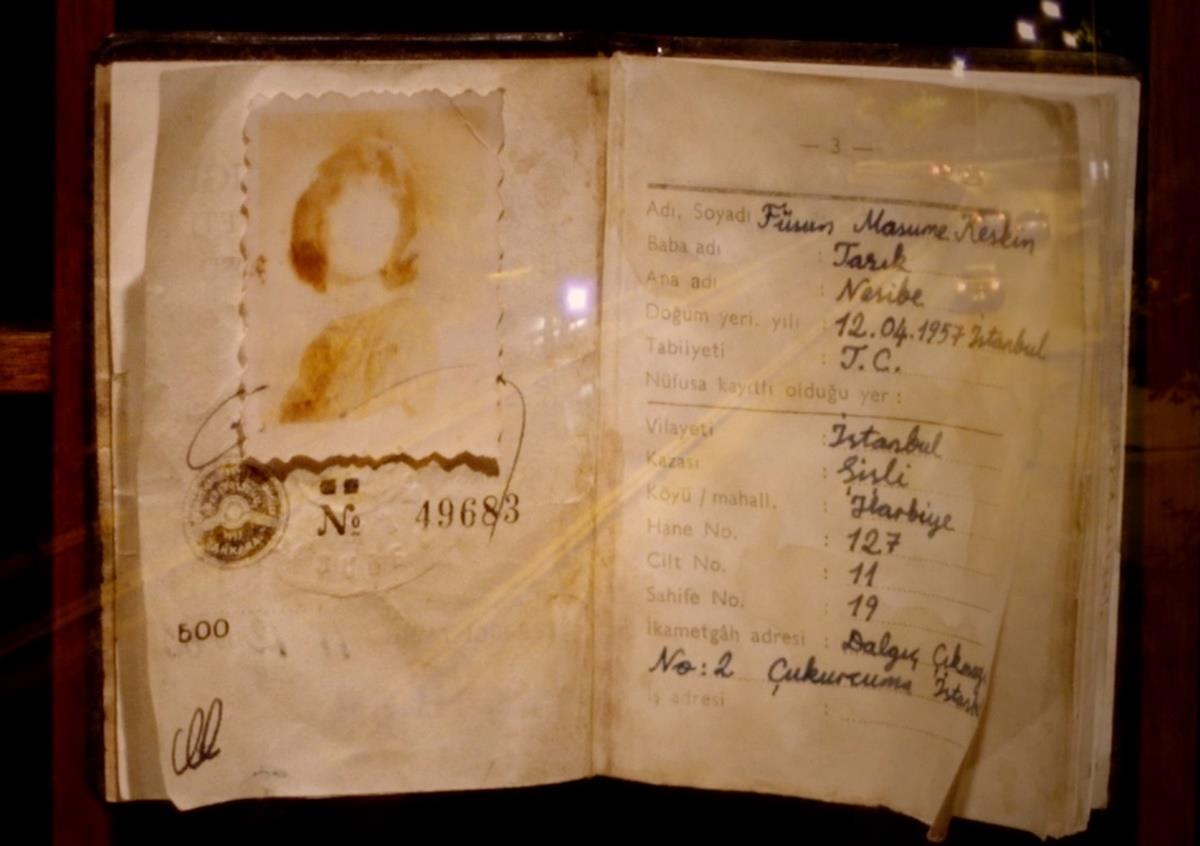 Nº 49683
500
— 3 —
Adı, Soyadı Füsun Masume Keskin
Baba adı : Tarık
Ana adı : Nesibe
Doğum yeri, yılı : 12.04.1957 İstanbul
Tabiiyeti : T.C.
Nüfusa kayıtlı olduğu yer :
Vilayeti : İstanbul
Kazası : Şişli
Köyü / mahall. : Harbiye
Hane No. : 127
Cilt No. : 11
Sahife No. : 19
İkametgâh adresi : Dalgıç Çıkmazı
No: 2 Çukurcuma İstanb
İş adresi :